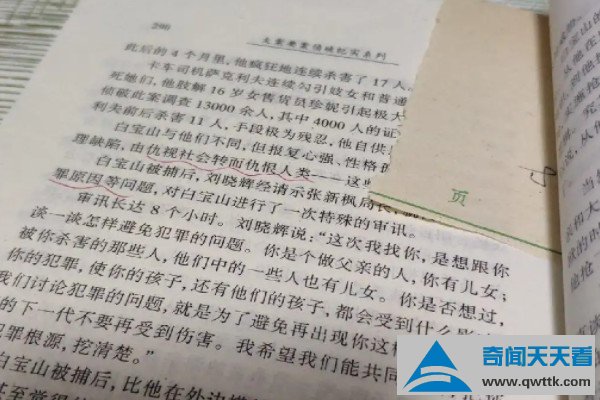 290
大案要案侦破纪实系列
此后的4个月里,他疯狂地连续杀害了17人
卡车司机萨克利夫连续勾引妓女和普通
死她们,他肢解16岁女售货员珍妮引起极大
侦破此案调查13000余人,其中4000人的证
利夫前后杀害11人,手段极为残忍,他自供
白宝山与他们不同,但报复心强、性格
理缺陷,由仇视社会转而仇恨人类——这
白宝山被捕后,刘晓辉经请示张新枫局长,
罪原因等问题,对白宝山进行了一次特殊的审讯。
审讯长达8个小时。刘晓辉说:“这次我找你,是想跟你
谈一谈怎样避免犯罪的问题。你是个做父亲的人,你有儿女;
被你杀害的那些人,他们中的一些人也有儿女。你是否想过,
你的犯罪,使你的孩子,还有他们的孩子,都会受到什么影
我们讨论犯罪的问题,就是为了避免再出现你这
的下一代不要再受到伤害。我希望我们能共同
犯罪根源,挖清楚。”
白宝山被捕后,比他在外边
甚至觉得
页
奇闻天天看
www.qwttk.com